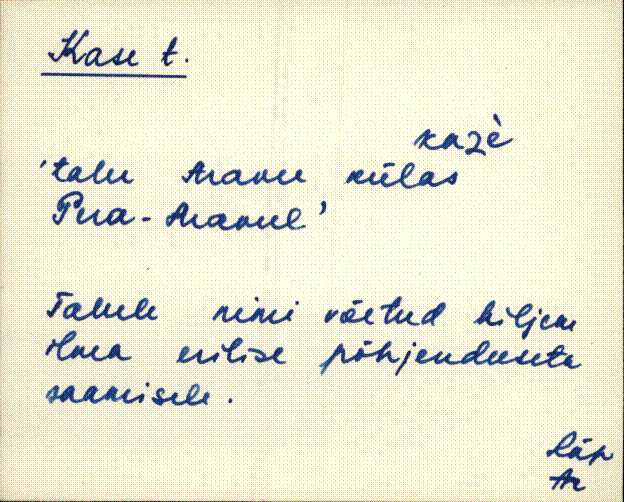 Kase t.
kazè
'talu Aravu külas
Pera-Aravul'
Talule nimi võetud hiljem
ilma erilise põhjenduseta
saamisele.
Räp
Ar